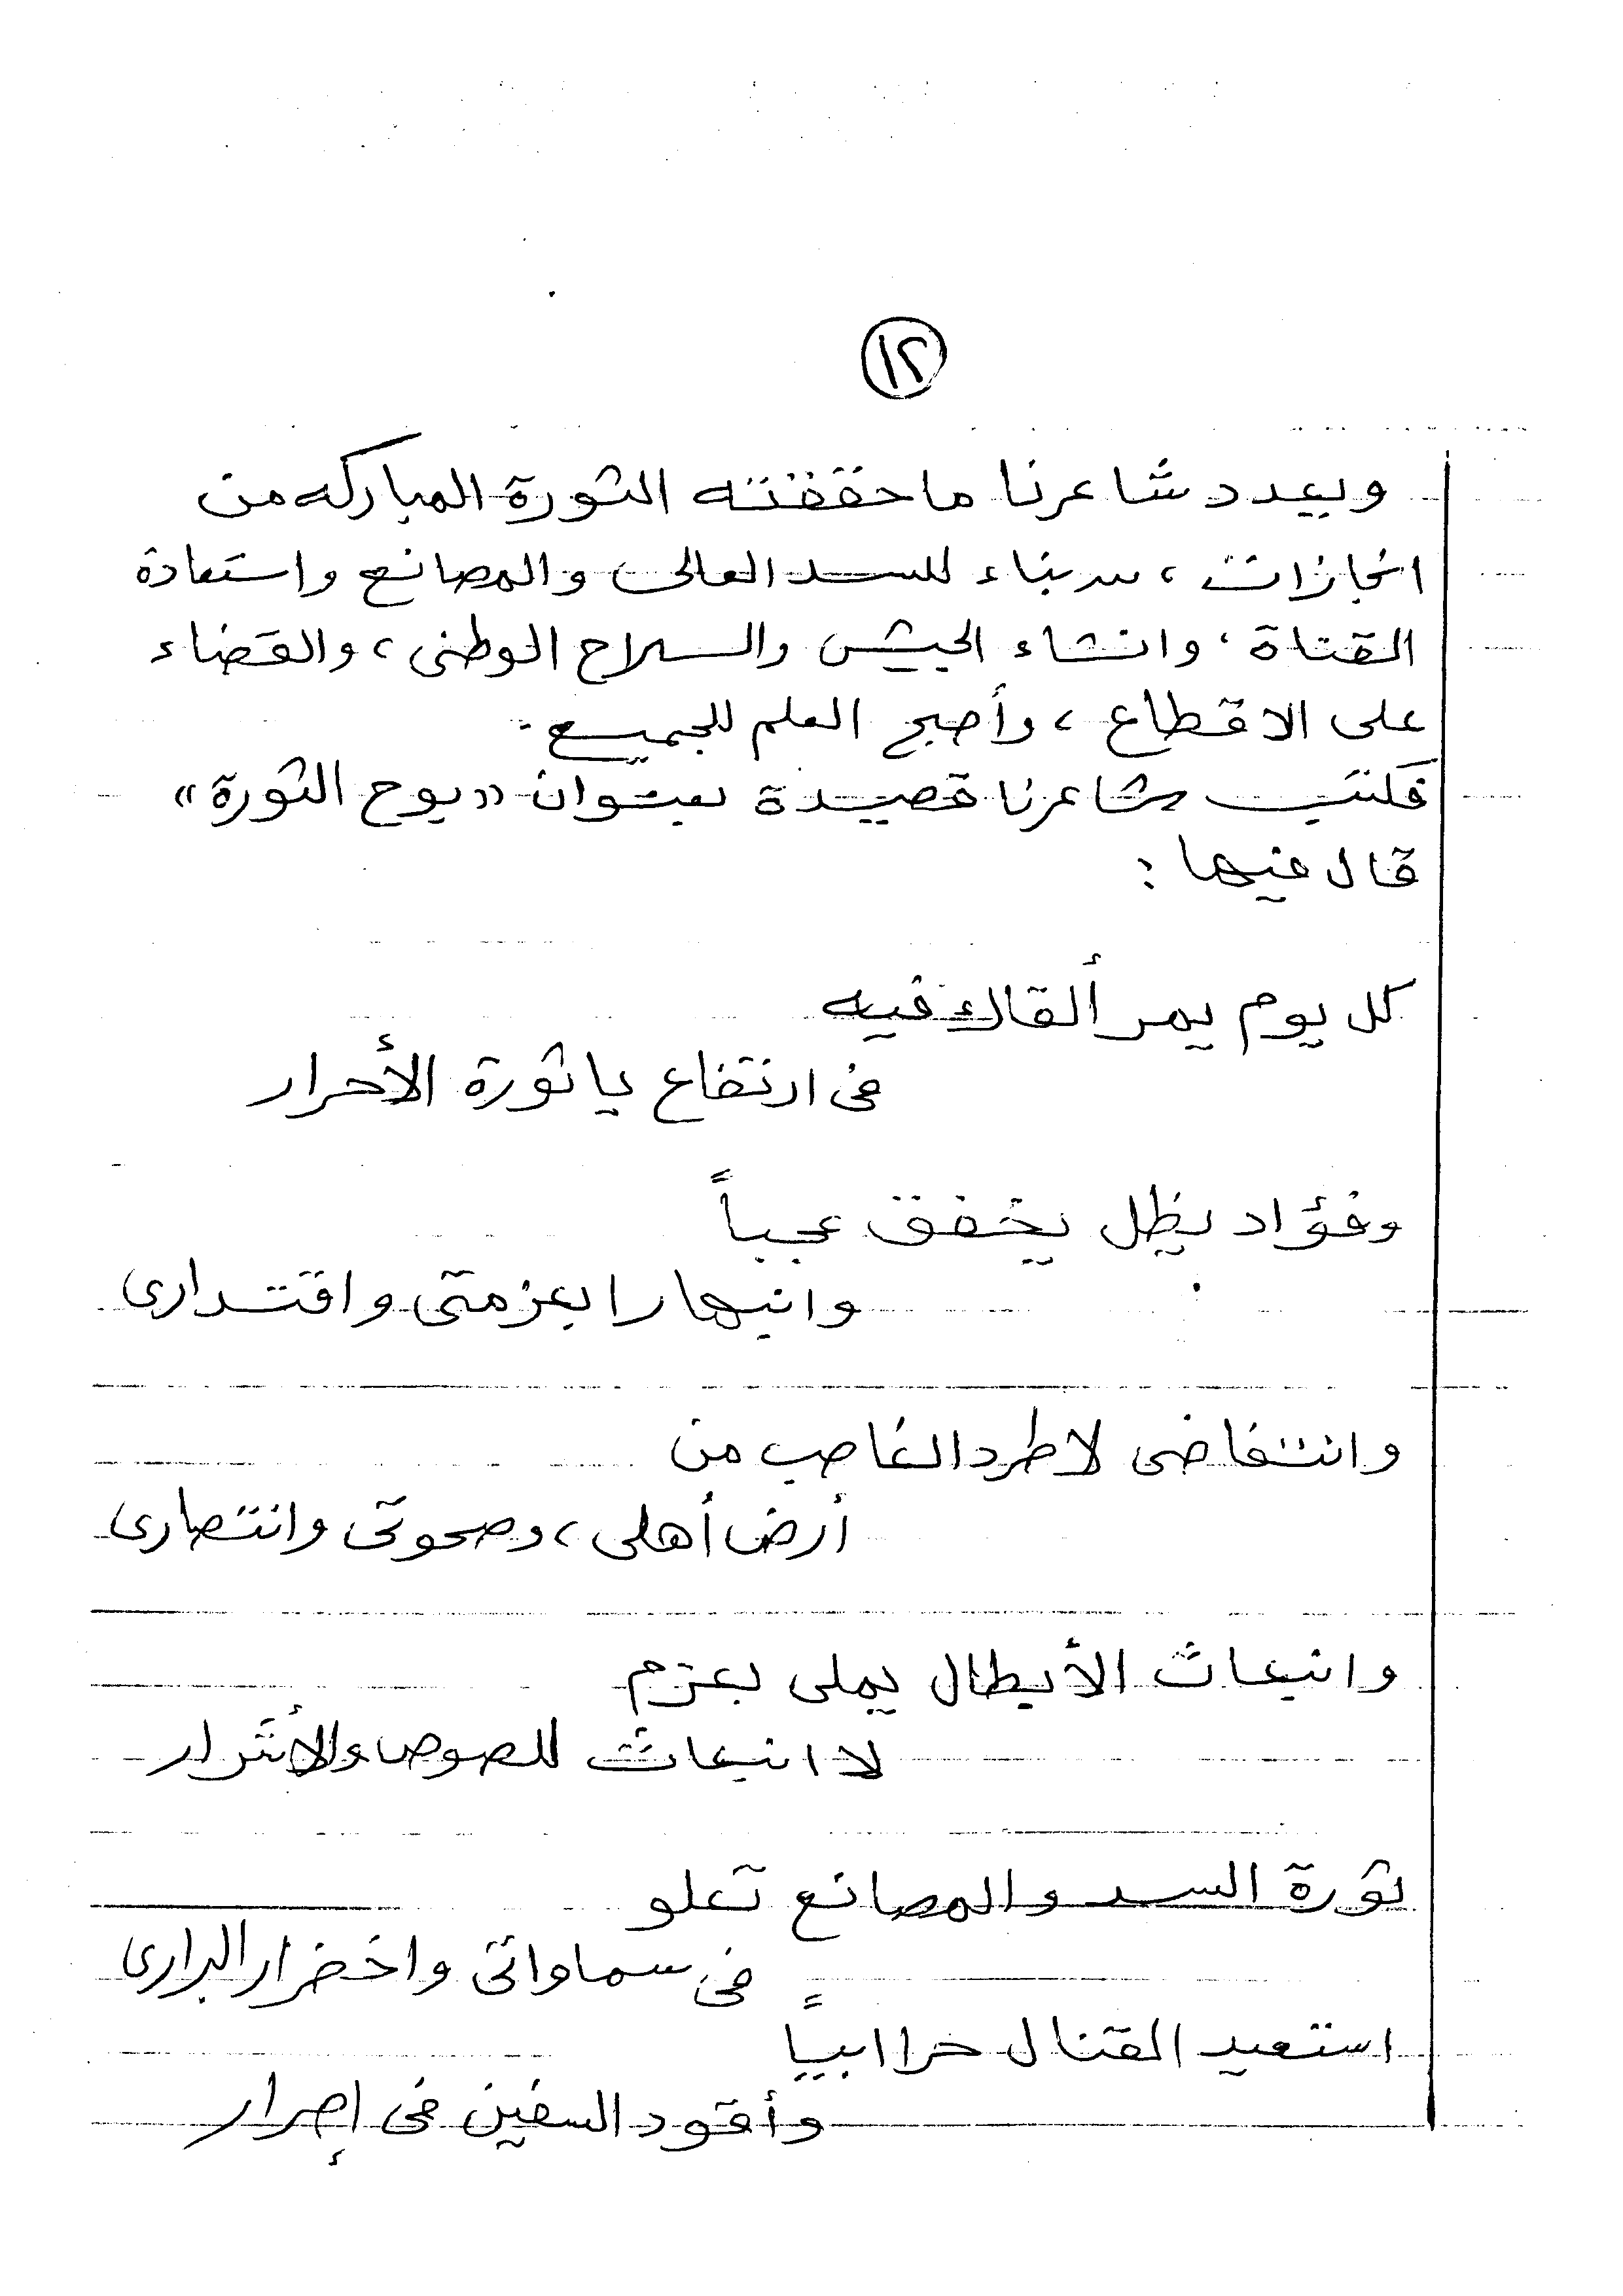 ١٢
ويعدد شاعرنا ما حققته الثورة المباركه من
انجازات ، من بناء للسد العالى والمصانع واستعادة
القناة ، وانشاء الجيش والسلاح الوطنى ، والقضاء
على الاقطاع ، وأصبح العلم للجميع .
فكتب شاعرنا قصيدة بعنوان « بوح الثورة »
قال فيها :
كل يوم يمر ألقاك فيه
فى ارتفاع يا ثورة الأحرار
وفؤاد يظل يخفق عجباً
وانبهارا بعزمتى واقتدارى
وانتفاضى لاطرد الغاصب من
أرض أهلى ، وصحوتى وانتصارى
وانبعاث الأبطال يملى بعزم
لا انبعاث للصوص والأشرار
ثورة السد والمصانع تعلو
فى سماواتى واخضرار البرارى
استعيد القنال حرا ابياً
وأقود السفين فى إصرار